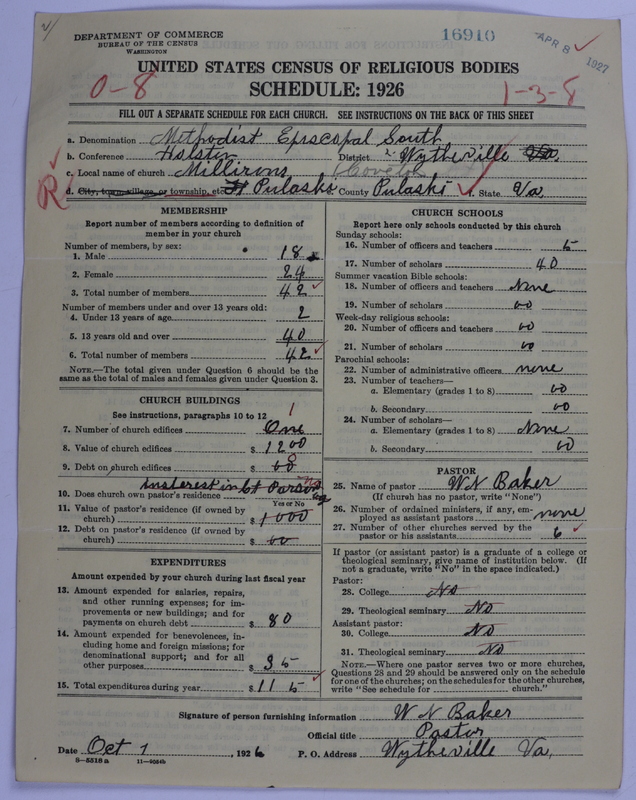 DEPARTMENT OF COMMERCE
BUREAU OF THE CENSUS
WASHINGTON
16910
APR 8 1927
UNITED STATES CENSUS OF RELIGIOUS BODIES
SCHEDULE: 1926
0-8
1-3-8
FILL OUT A SEPARATE SCHEDULE FOR EACH CHURCH. SEE INSTRUCTIONS ON THE BACK OF THIS SHEET
a. Denomination Methodist Episcopal South
b. Conference Holston District Wytheville Va.
c. Local name of church Millirons
R
d. City, town, village, or township, etc. Pulaski e. County Pulaski f. State Va,
MEMBERSHIP
Report number of members according to definition of member in your church
Number of members, by sex:
1. Male 18
2. Female 24
3. Total number of members 42
Number of members under and over 13 years old:
4. Under 13 years of age 2
5. 13 years old and over 40
6. Total number of members 42
NOTE.—The total given under Question 6 should be the same as the total of males and females given under Question 3.
CHURCH BUILDINGS
See instructions, paragraphs 10 to 12
1
7. Number of church edifices One
8. Value of church edifices $ 1200
9. Debt on church edifices $ 00
10. Does church own pastor's residence Insterest in Parsonage
Yes or No
11. Value of pastor's residence (if owned by church) $ 1000
12. Debt on pastor's residence (if owned by church) $ 00
EXPENDITURES
Amount expended by your church during last fiscal year
13. Amount expended for salaries, repairs, and other running expenses; for improvements or new buildings; and for payments on church debt $ 80
14. Amount expended for benevolences, including home and foreign missions; for denominational support; and for all other purposes $ 35
15. Total expenditures during year $ 115
CHURCH SCHOOLS
Report here only schools conducted by this church
Sunday schools:
16. Number of officers and teachers 5
17. Number of scholars 40
Summer vacation Bible schools:
18. Number of officers and teachers None
19. Number of scholars 00
Week-day religious schools:
20. Number of officers and teachers 00
21. Number of scholars 00
Parochial schools:
22. Number of administrative officers none
23. Number of teachers—
a. Elementary (grades 1 to 8) 00
b. Secondary 00
24. Number of scholars—
a. Elementary (grades 1 to 8) None
b. Secondary 00
PASTOR
25. Name of pastor W N Baker
(If church has no pastor, write "None")
26. Number of ordained ministers, if any, employed as assistant pastors none
27. Number of other churches served by the pastor or his assistants 6
If pastor (or assistant pastor) is a graduate of a college or theological seminary, give name of institution below. (If not a graduate, write "No" in the space indicated.)
Pastor:
28. College No
29. Theological seminary No
Assistant pastor:
30. College No
31. Theological seminary No
NOTE.—Where one pastor serves two or more churches, Questions 28 and 29 should be answered only on the schedule for one of the churches; on the schedules for the other churches, write "See schedule for church."
Signature of person furnishing information W N Baker
Official title Pastor
Date Oct 1, 1926 P. O. Address Wytheville Va,
8-5518a 11-9054b